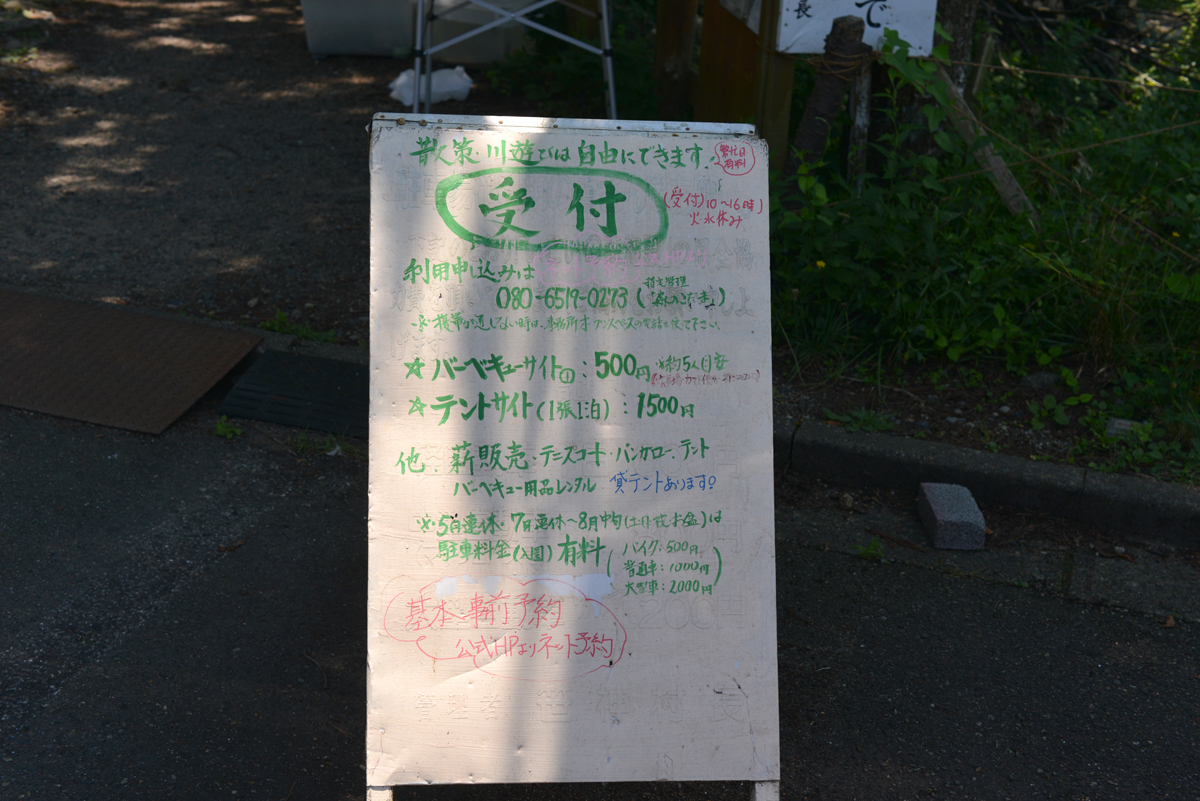 で
長
散策・川遊びは自由にできます。
繁忙日
有料
受付
(受付)10〜16時)
火・水休み
利用申し込みは
指定管理
080-6519-0273(「森のこだま」)
※携帯が通じない時は、事務所オープンスペースの電話を使って下さい。
☆バーベキューサイト①:500円 ※約5人目安
☆テントサイト(1張1泊):1500円
他.薪販売・テニスコート・バンガロー、テント
バーベキュー用品レンタル 貸テントあります!
※5月連休・7月連休〜8月中旬(土日・祝・お盆)は
駐車料金(入園)有料
バイク:500円
普通車:1000円
大型車:2000円
基本・事前予約
公式HPよりネット予約
管理者
村長